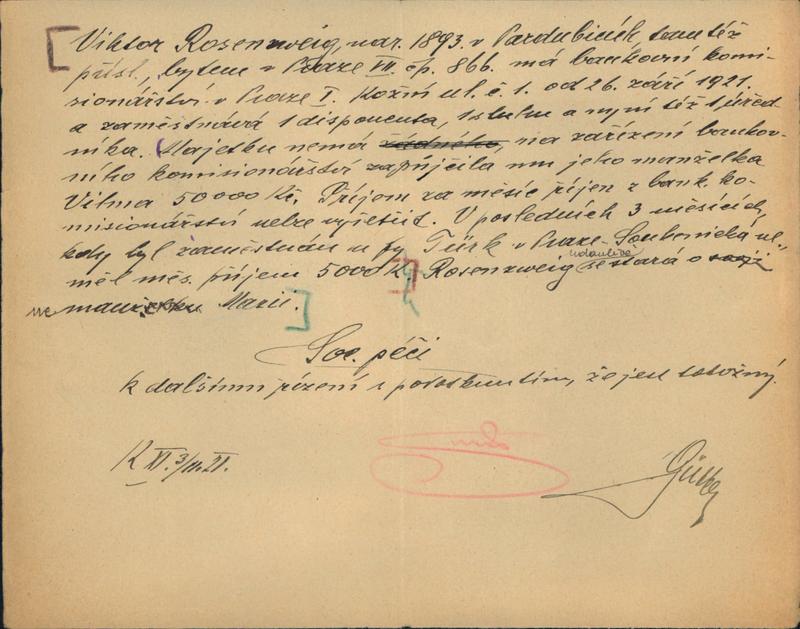 Viktor Rosenzweig, nar. 1893. v Pardubicích tamtéž
přísl., bytem v Praze VII. čp. 866. má bankovní komi-
sionářství v Praze I. Kožní ul. č. 1. od 26. září 1921.
a zaměstnává 1 disponenta, 1 sluhu a nyní též 1 úřed-
níka. Majetku nemá žádného, na zařízení bankov-
ního komisionářství zapůjčila mu jeho manželka
Vilma 50000 Kč. Příjem za měsíc říjen z bank. ko-
misionářství nelze vyšetřit. V posledních 3 měsících,
kdy byl zaměstnán u fy Türk v Praze - ul.,
měl měs. příjem 5000 Kč. Rosenzweig se stará o
manželku Marii.
Soc. péči
k dalšímu řízení s že jest totožný.
K XI. 3/11. 21.